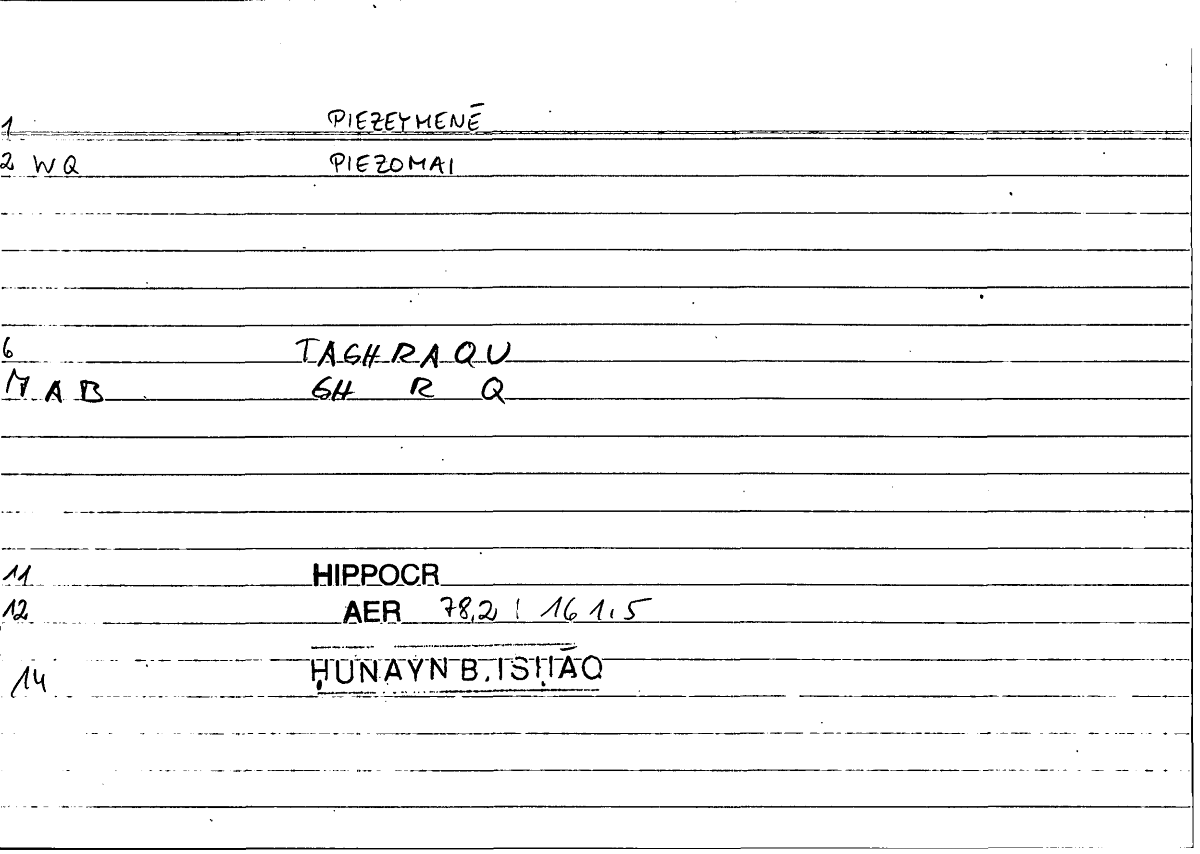 1 PIEZEYMENĒ
2 WQ PIEZOMAI
6 TAGHRAQU
7 A B GH R Q
11 HIPPOCR
12 AER 78,2 ; 16 1.5
14 ḤUNAYN B. ISḤĀQ